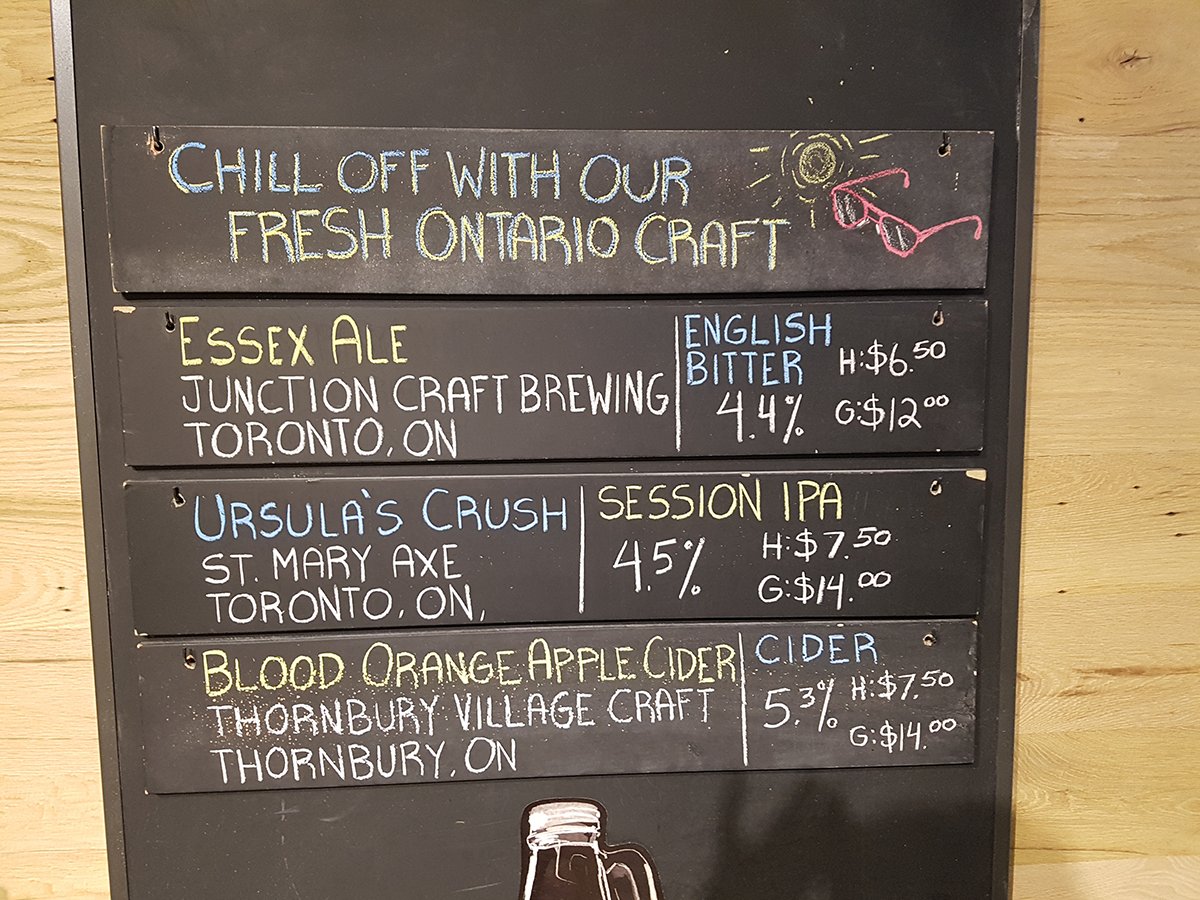 CHILL OFF WITH OUR
FRESH ONTARIO CRAFT
ESSEX ALE
JUNCTION CRAFT BREWING
TORONTO, ON
ENGLISH
BITTER
4.4%
H:$6.50
G:$12.00
URSULA'S CRUSH
ST. MARY AXE
TORONTO, ON,
SESSION IPA
4.5%
H:$7.50
G:$14.00
BLOOD ORANGE APPLE CIDER
THORNBURY VILLAGE CRAFT
THORNBURY, ON
CIDER
5.3%
H:$7.50
G:$14.00